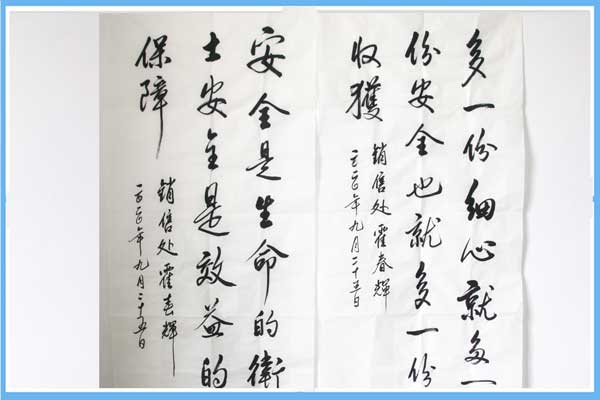 多一份细心就多一
份安全也就多一份
收獲
销售处霍春輝
年九月二十五日
安全是生命的衛
士安全是效益的
保障
销售处霍春輝
年九月二十五日